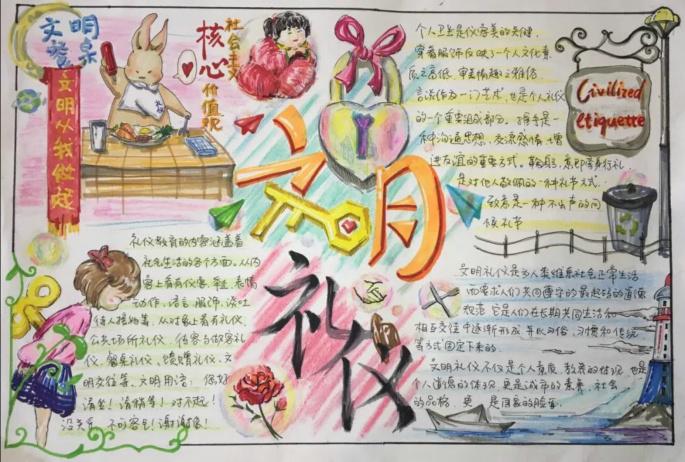 文明
餐桌
文明从我做起
社会主义
核心
价值观
文明
礼仪
个人卫生是仪容美的关键,
穿着服饰反映了一个人文化素
质之高低,审美情趣之雅俗
言谈作为一门艺术,也是个人礼仪
的一个重要组成部分。握手是一
种沟通思想、交流感情、增
进友谊的重要方式。鞠躬,意即弯身行礼
是对他人敬佩的一种礼节方式.
致意是一种不出声的问
候礼节
Civilized
etiquette
礼仪教育的内容涵盖着
社会生活的各个方面。从内
容上看有仪容、举止、表情
动作、语言、服饰、谈吐
待人接物等,从对象上看有礼仪、
公共场所礼仪、待客与做客礼
仪、餐桌礼仪、馈赠礼仪、文
明交往等。文明用语: 您好
请坐!请稍等!对不起!
没关系 不必客气!谢谢您!
文明礼仪是为人类维系社会正常生活
而要求人们共同遵守的最起码的道德
规范 它是人们在长期共同生活和
相互交往中逐渐形成 并以风俗、习惯和传统
等方式固定下来的.
文明礼仪不仅是个人素质、教养的体现,也是
个人道德的体现,更是城市的素养,社会
的品格,更是国家的脸面.